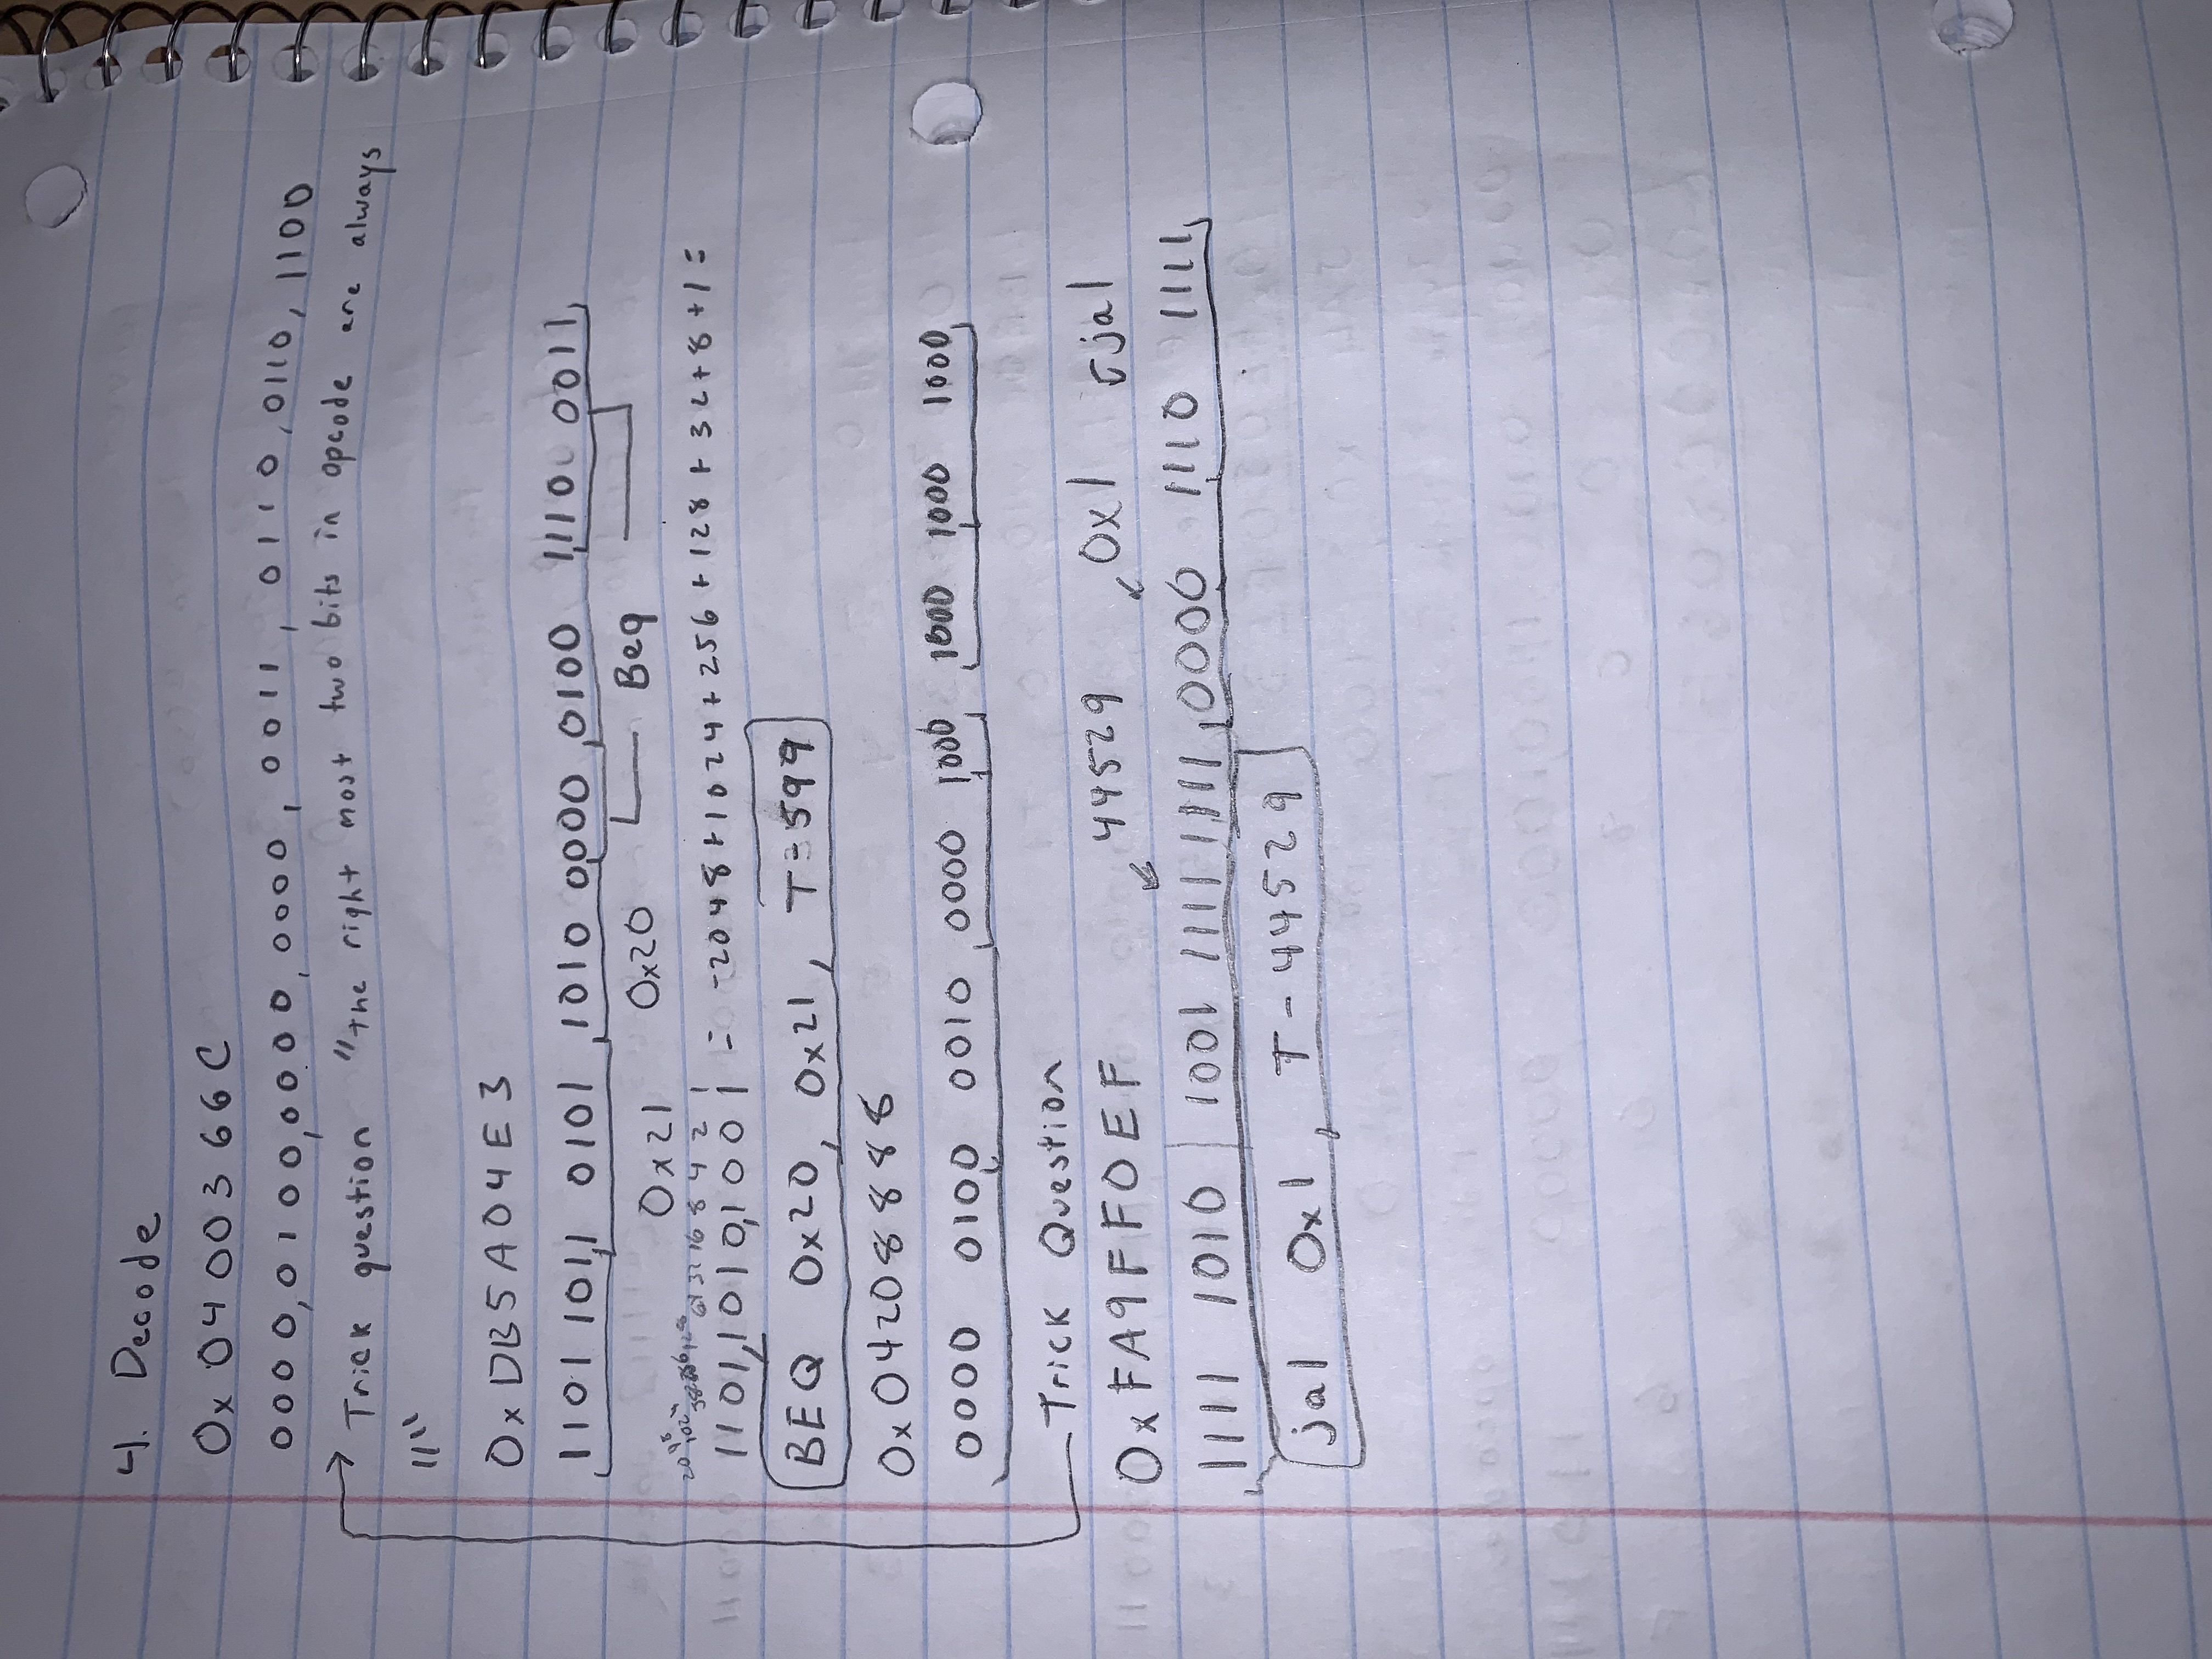 4. Decode
0x 0400366C
0000,0100,0000,0000, 0011, 0110,0110, 1100
Trick question "the right most two bits in opcode are always
11"
0x DB5A04E3
1101 1011 0101 1010 0000 0100 1110 0011
0x21 0x20 Beq
64 32 16 8 4 2 1
1101,1010,1001 = -2048+1024+256+128+32+8+1=
BEQ 0x20, 0x21, T-599
0x04208888
0000 0100 0010 0000 1000 1000 1000 1000
Trick Question
0xFA9FF0EF 44529 0x1 jal
1111 1010 1001 1111 1111 0000 1110 1111
jal 0x1, T-44529